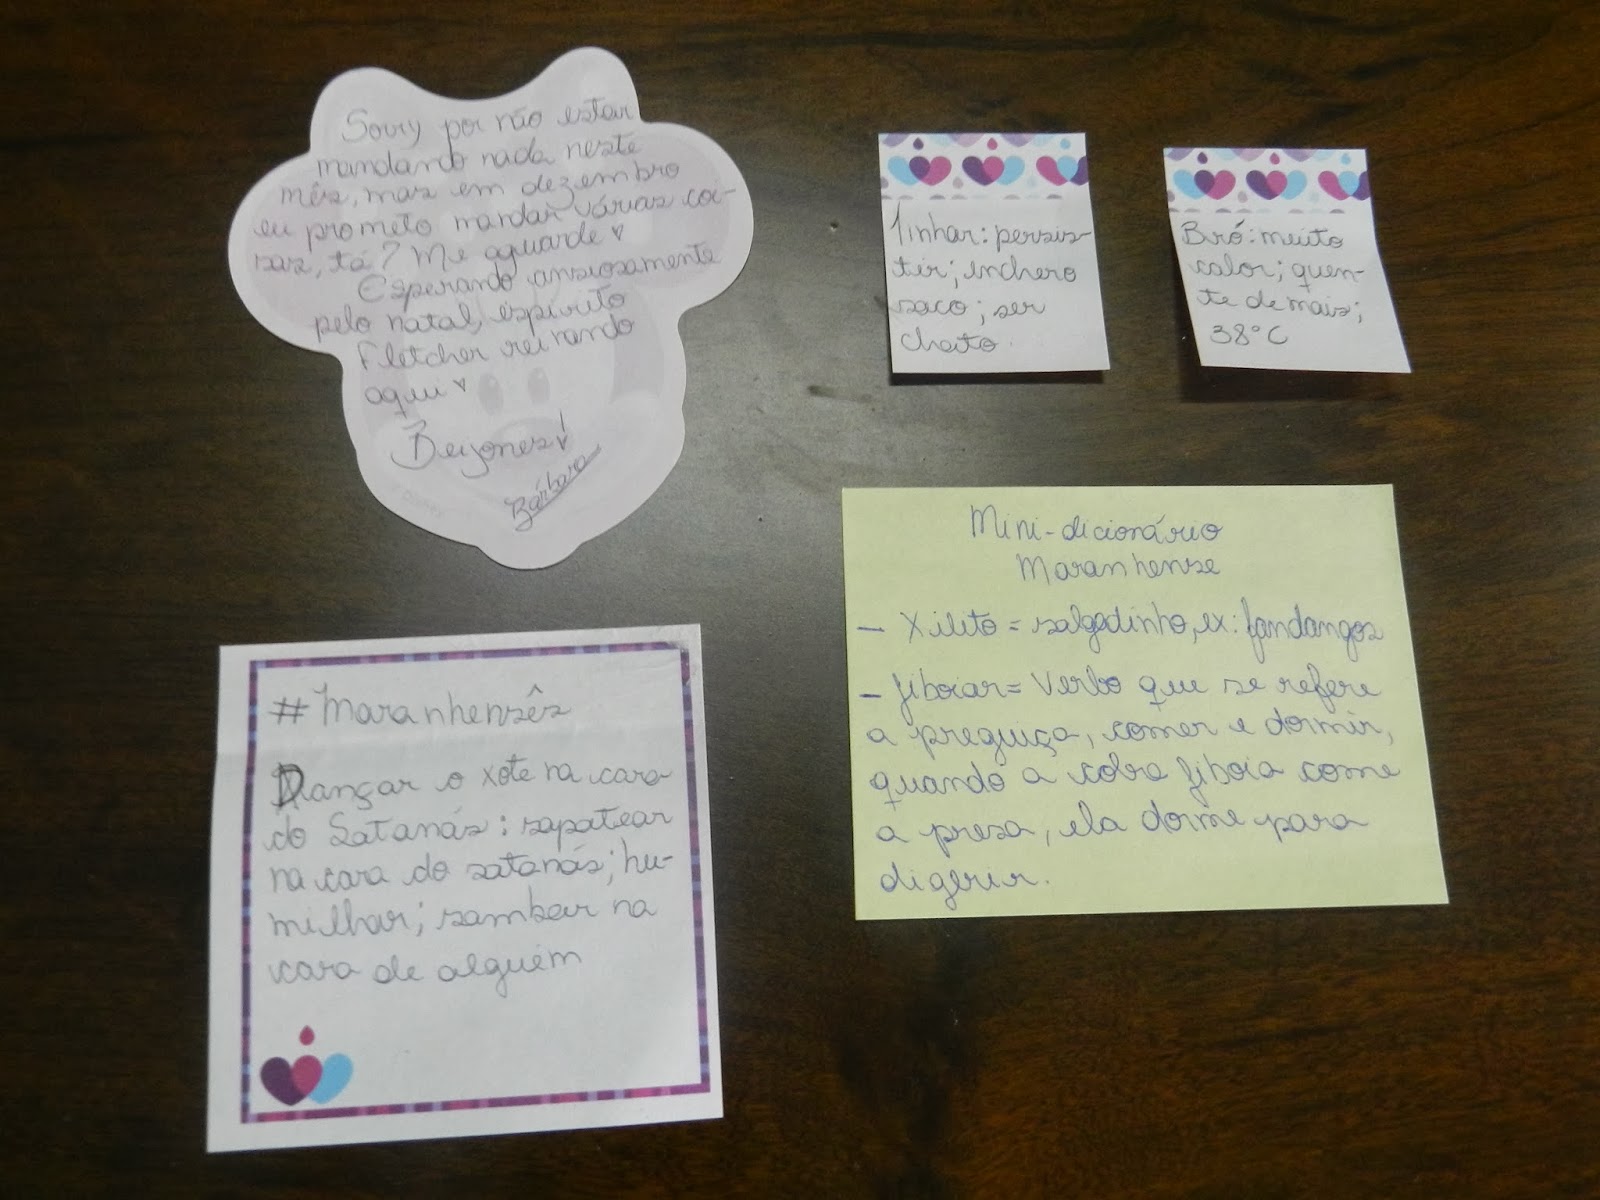 Sorry por não estar
mandando nada neste
mês, mas em dezembro
eu prometo mandar várias coi-
sas, tá? Me aguarde ♥
Esperando ansiosamente
pelo natal, espírito
Fletcher reinando
aqui ♥
Beijones!
Bárbara
Tinhar: persis-
tir; encher o
saco; ser
chato.
Bró: muito
calor; quen-
te demais;
38°C
Mini-dicionário
Maranhense
- Xilito = salgadinho, ex: fandangos
- Jiboiar = Verbo que se refere
a preguiça, comer e dormir,
quando a cobra jiboia come
a presa, ela dorme para
digerir.
#Maranhensês
Dançar o xote na cara
do Satanás: sapatear
na cara do satanás; hu-
milhar; sambar na
cara de alguém